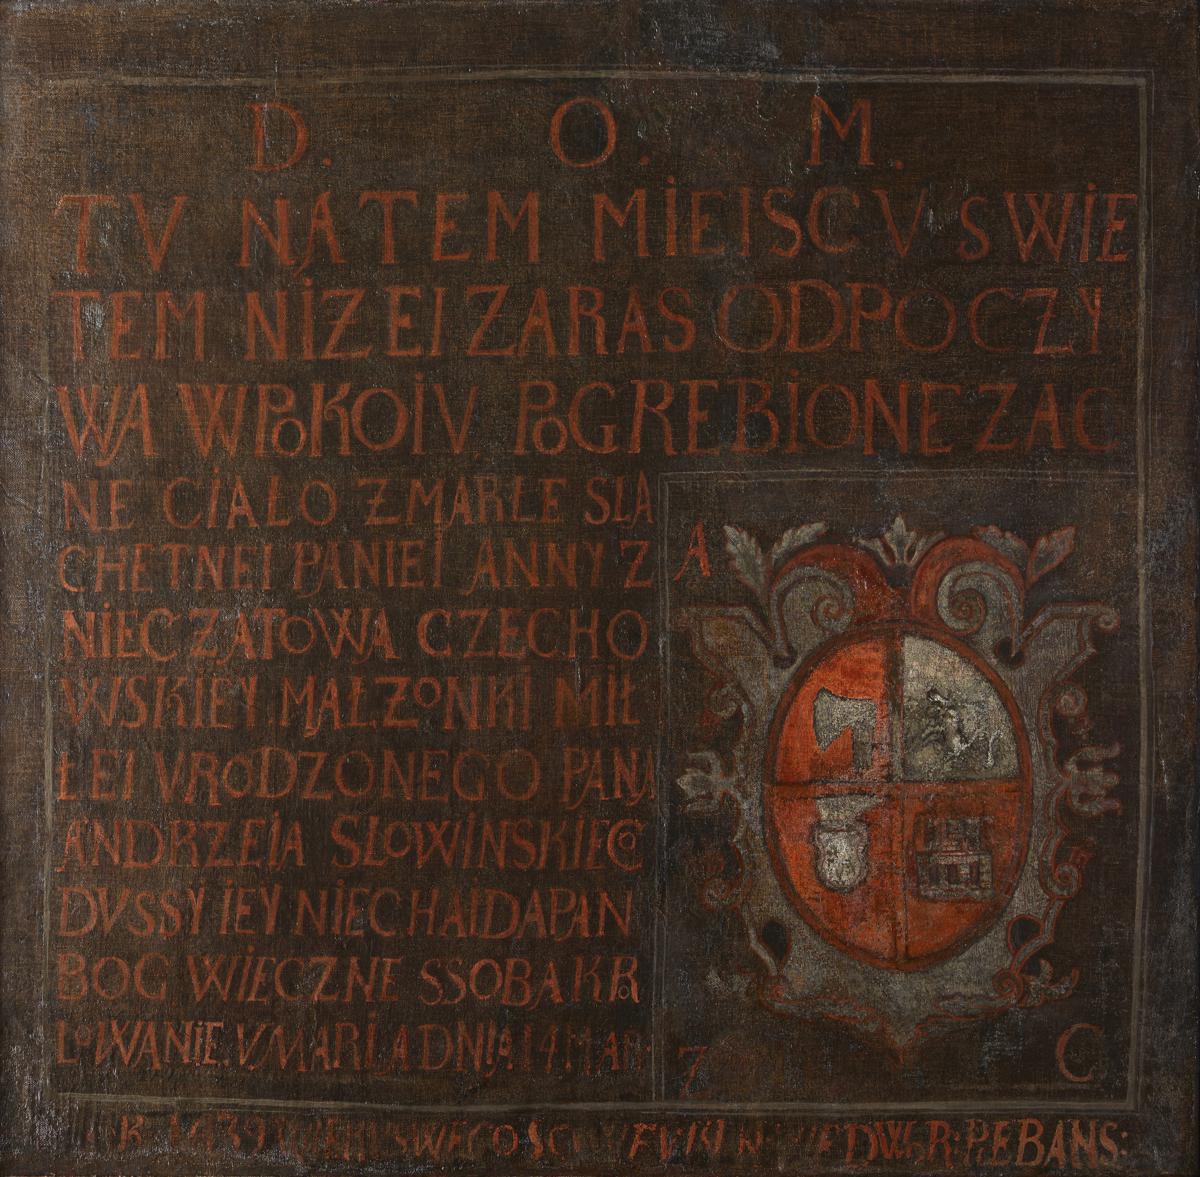 D. O. M.
TV NA TEM MIEISCV SWIE
TEM NIZEI ZARAS ODPOCZY
WA WPOKOIV POGREBIONE ZAC
NE CIAŁO ZMARŁE SLA
CHETNEI PANIEI ANNY Z
NIECZATOWA CZECHO
WSKIEY MAŁZONKI MIŁ
ŁEI VRODZONEGO PANA
ANDRZEIA SŁOWINSKIEGO
DVSSY IEY NIECHAI DA PAN
BOG WIECZNE SSOBA KRO
LOWANIE. VMARŁA DNIA 14 MAR
A
Z C
1639 DWŁR: PEBANS: